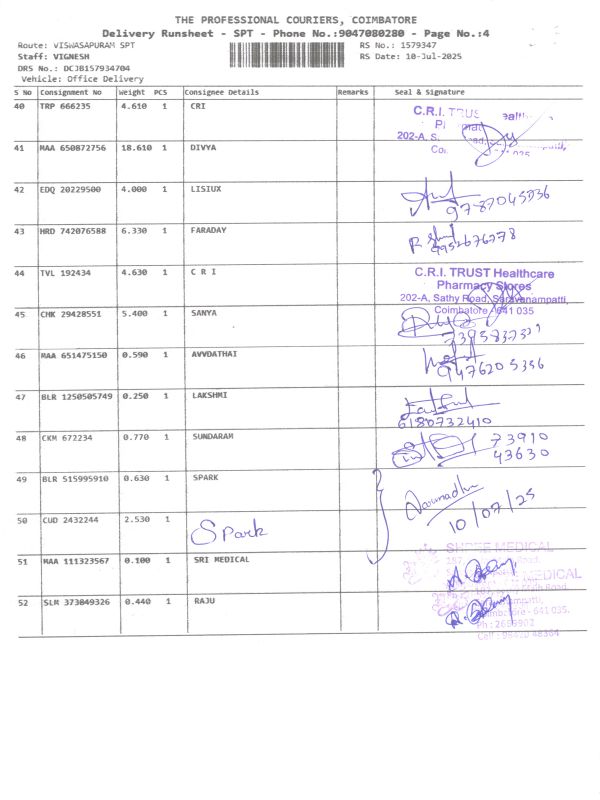 THE PROFESSIONAL COURIERS, COIMBATORE
Delivery Runsheet - SPT - Phone No.:9047080280 - Page No.:4
Route: VISWASAPURAM SPT RS No.: 1579347
Staff: VIGNESH RS Date: 10-Jul-2025
DRS No.: DCJB157934704
Vehicle: Office Delivery
S No Consignment No Weight PCS Consignee Details Remarks Seal & Signature
40 TRP 666235 4.610 1 CRI
C.R.I. TRUS
202-A, S.
41 MAA 650872756 18.610 1 DIVYA
42 EDQ 20229500 4.000 1 LISIUX
9787045936
43 HRD 742076588 6.330 1 FARADAY
44 TVL 192434 4.630 1 C R I
C.R.I. TRUST Healthcare
Pharmacy Stores
202-A, Sathy Road, Saravanampatti,
Coimbatore - 641 035
45 CHK 29428551 5.400 1 SANYA
46 MAA 651475150 0.590 1 AVVDATHAI
9476205356
47 BLR 1250505749 0.250 1 LAKSHMI
6180732410
48 CKM 672234 0.770 1 SUNDARAM
73910
43630
49 BLR 515995910 0.630 1 SPARK
Narmadha
10/07/25
50 CUD 2432244 2.530 1
Spark
51 MAA 111323567 0.100 1 SRI MEDICAL
SHREE MEDICAL
MEDICAL
52 SLM 373849326 0.440 1 RAJU
641 035.
Ph : 2669902
Cell : 98420 48364